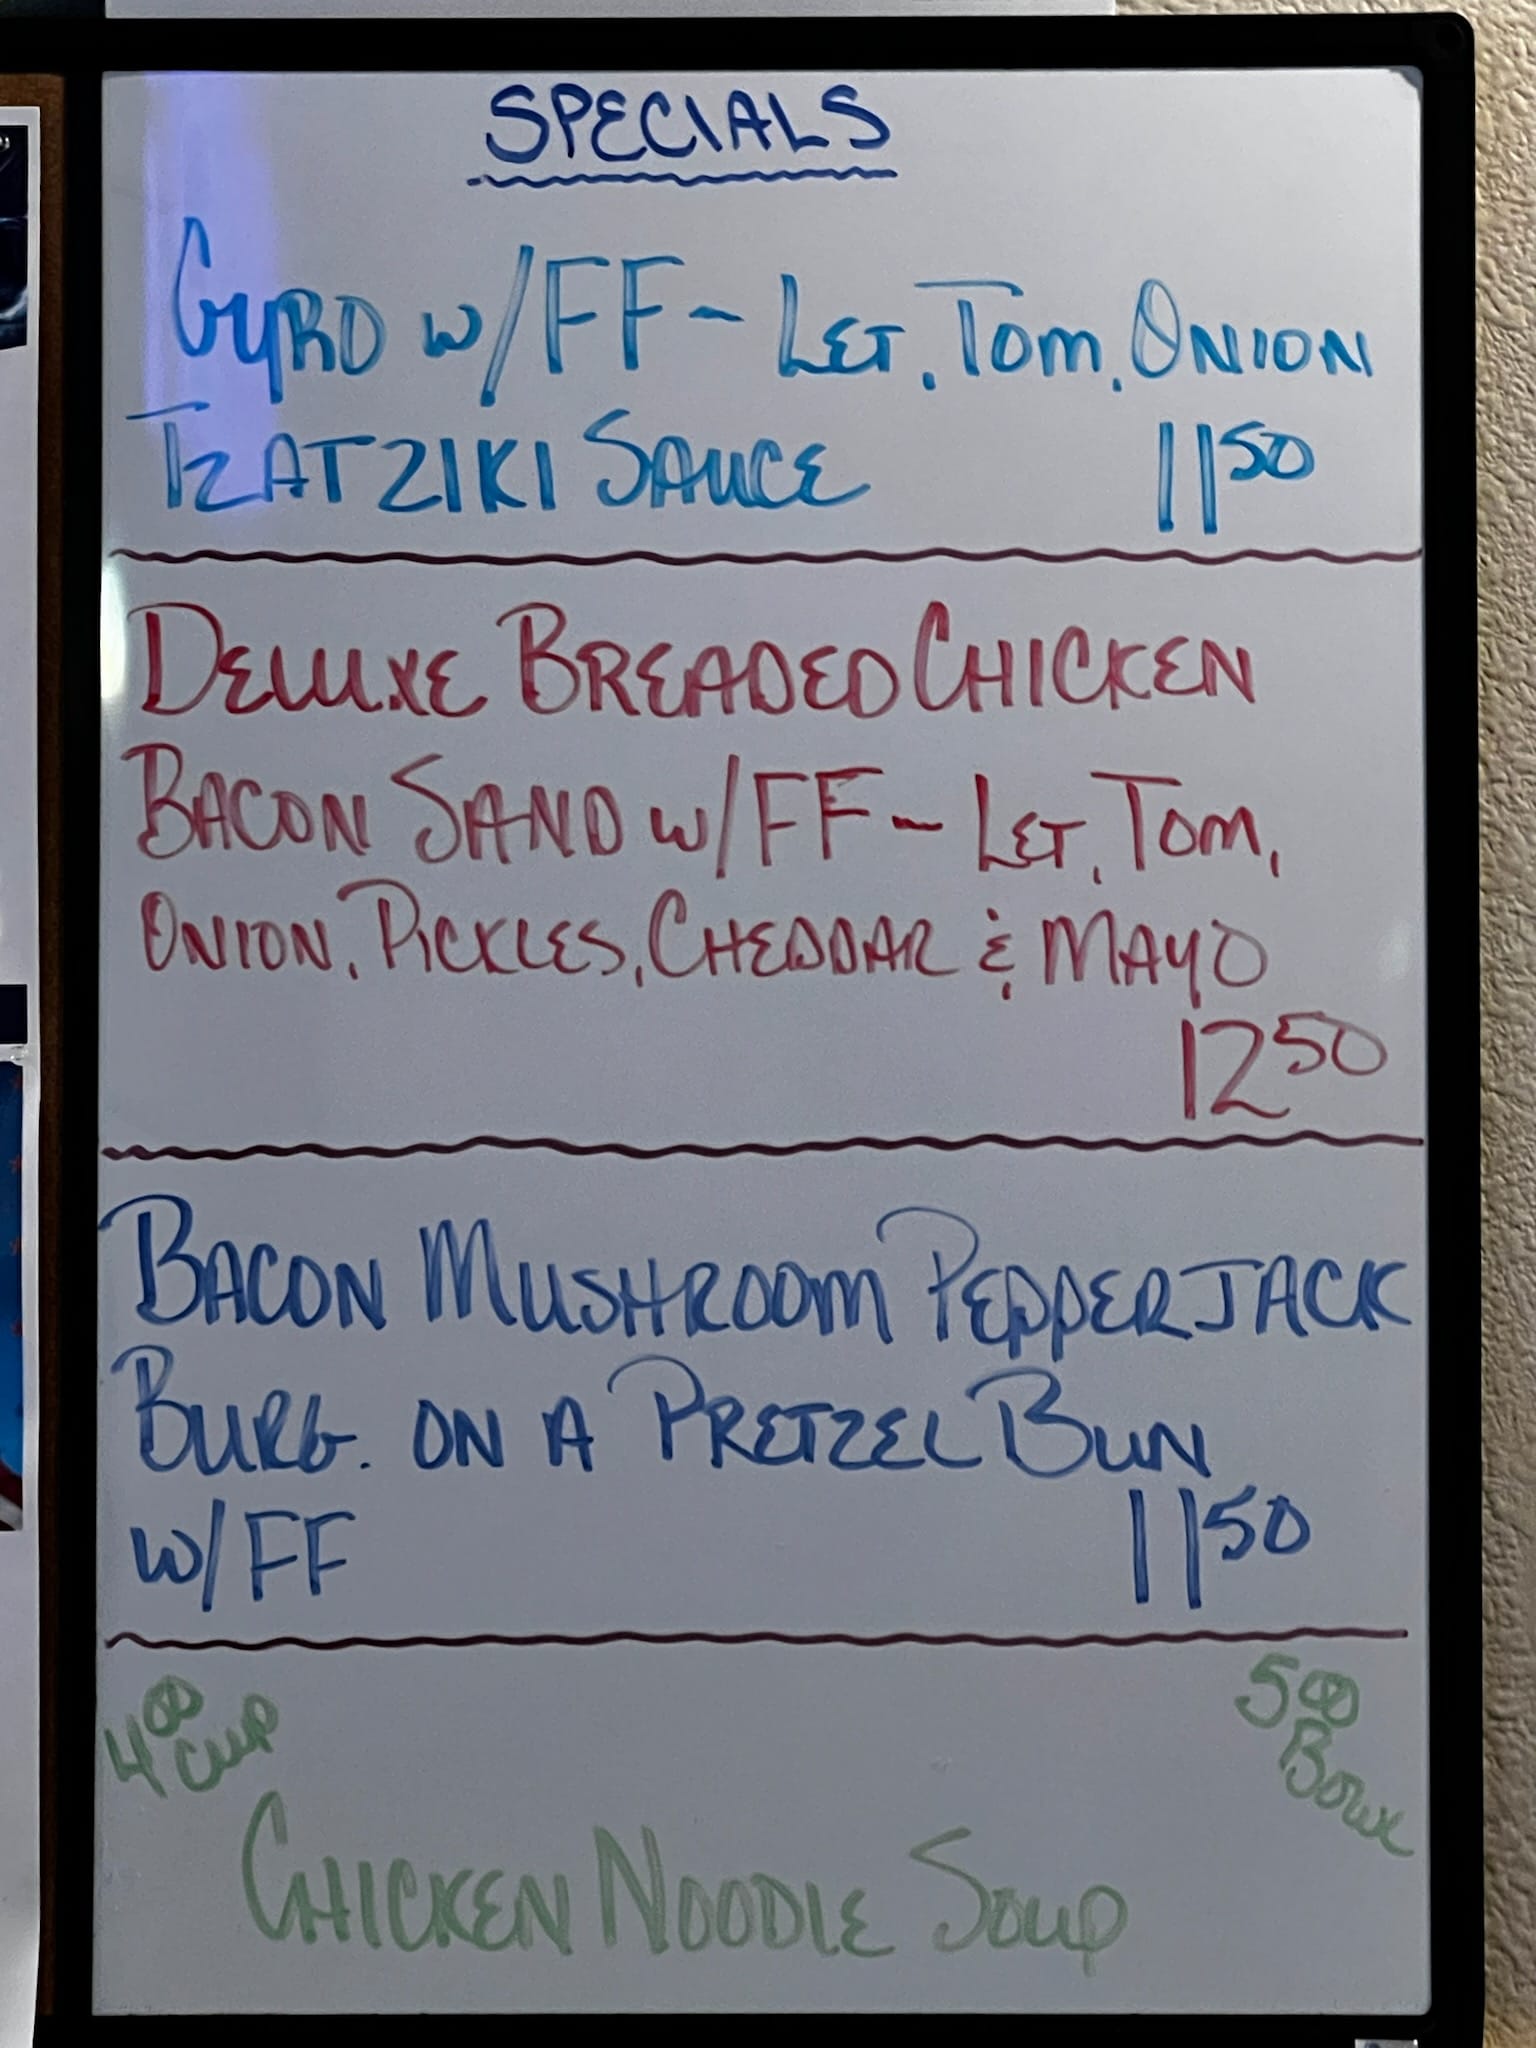 SPECIALS
GYRO W/FF ~ LET, TOM, ONION
TZATZIKI SAUCE 11 50
DELUXE BREADED CHICKEN
BACON SAND W/FF ~ LET, TOM,
ONION, PICKLES, CHEDDAR & MAYO
12 50
BACON MUSHROOM PEPPERJACK
BURG. ON A PRETZEL BUN
W/FF 11 50
4 00 CUP
5 00 BOWL
CHICKEN NOODLE SOUP